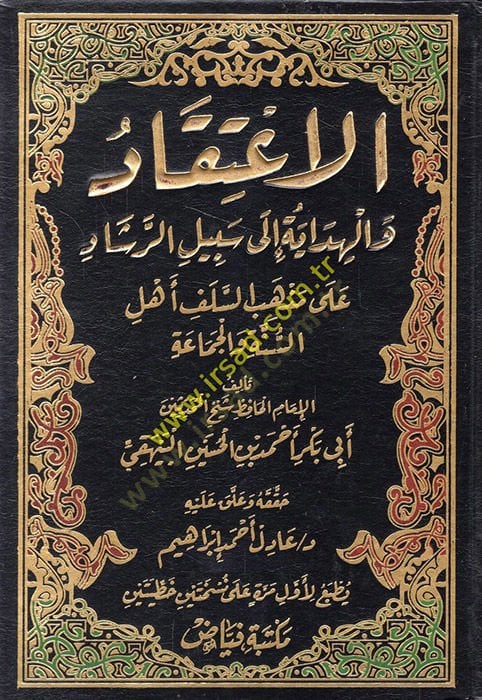 الاعْتِقَادُ
وَالهِدَايَةُ إِلَى سَبِيلِ الرَّشَادِ
عَلَى مَذْهَبِ السَّلَفِ أَهْلِ
السُّنَّةِ وَالْجَمَاعَةِ
تأليف
الإمَامِ الحَافِظِ شَيْخِ المُحَدِّثِينَ
أَبِي بَكْرٍ أَحْمَدَ بْنِ الحُسَيْنِ البَيْهَقِيِّ
حَقَّقَهُ وَعَلَّقَ عَلَيْهِ
د/عَادِل أَحْمَد إِبْرَاهِيم
يُطْبَعُ لِأَوَّلِ مَرَّةٍ عَلَى نُسْخَتَيْنِ خَطِّيَّتَيْنِ
مكتبة فياض
www.irsad.com.tr